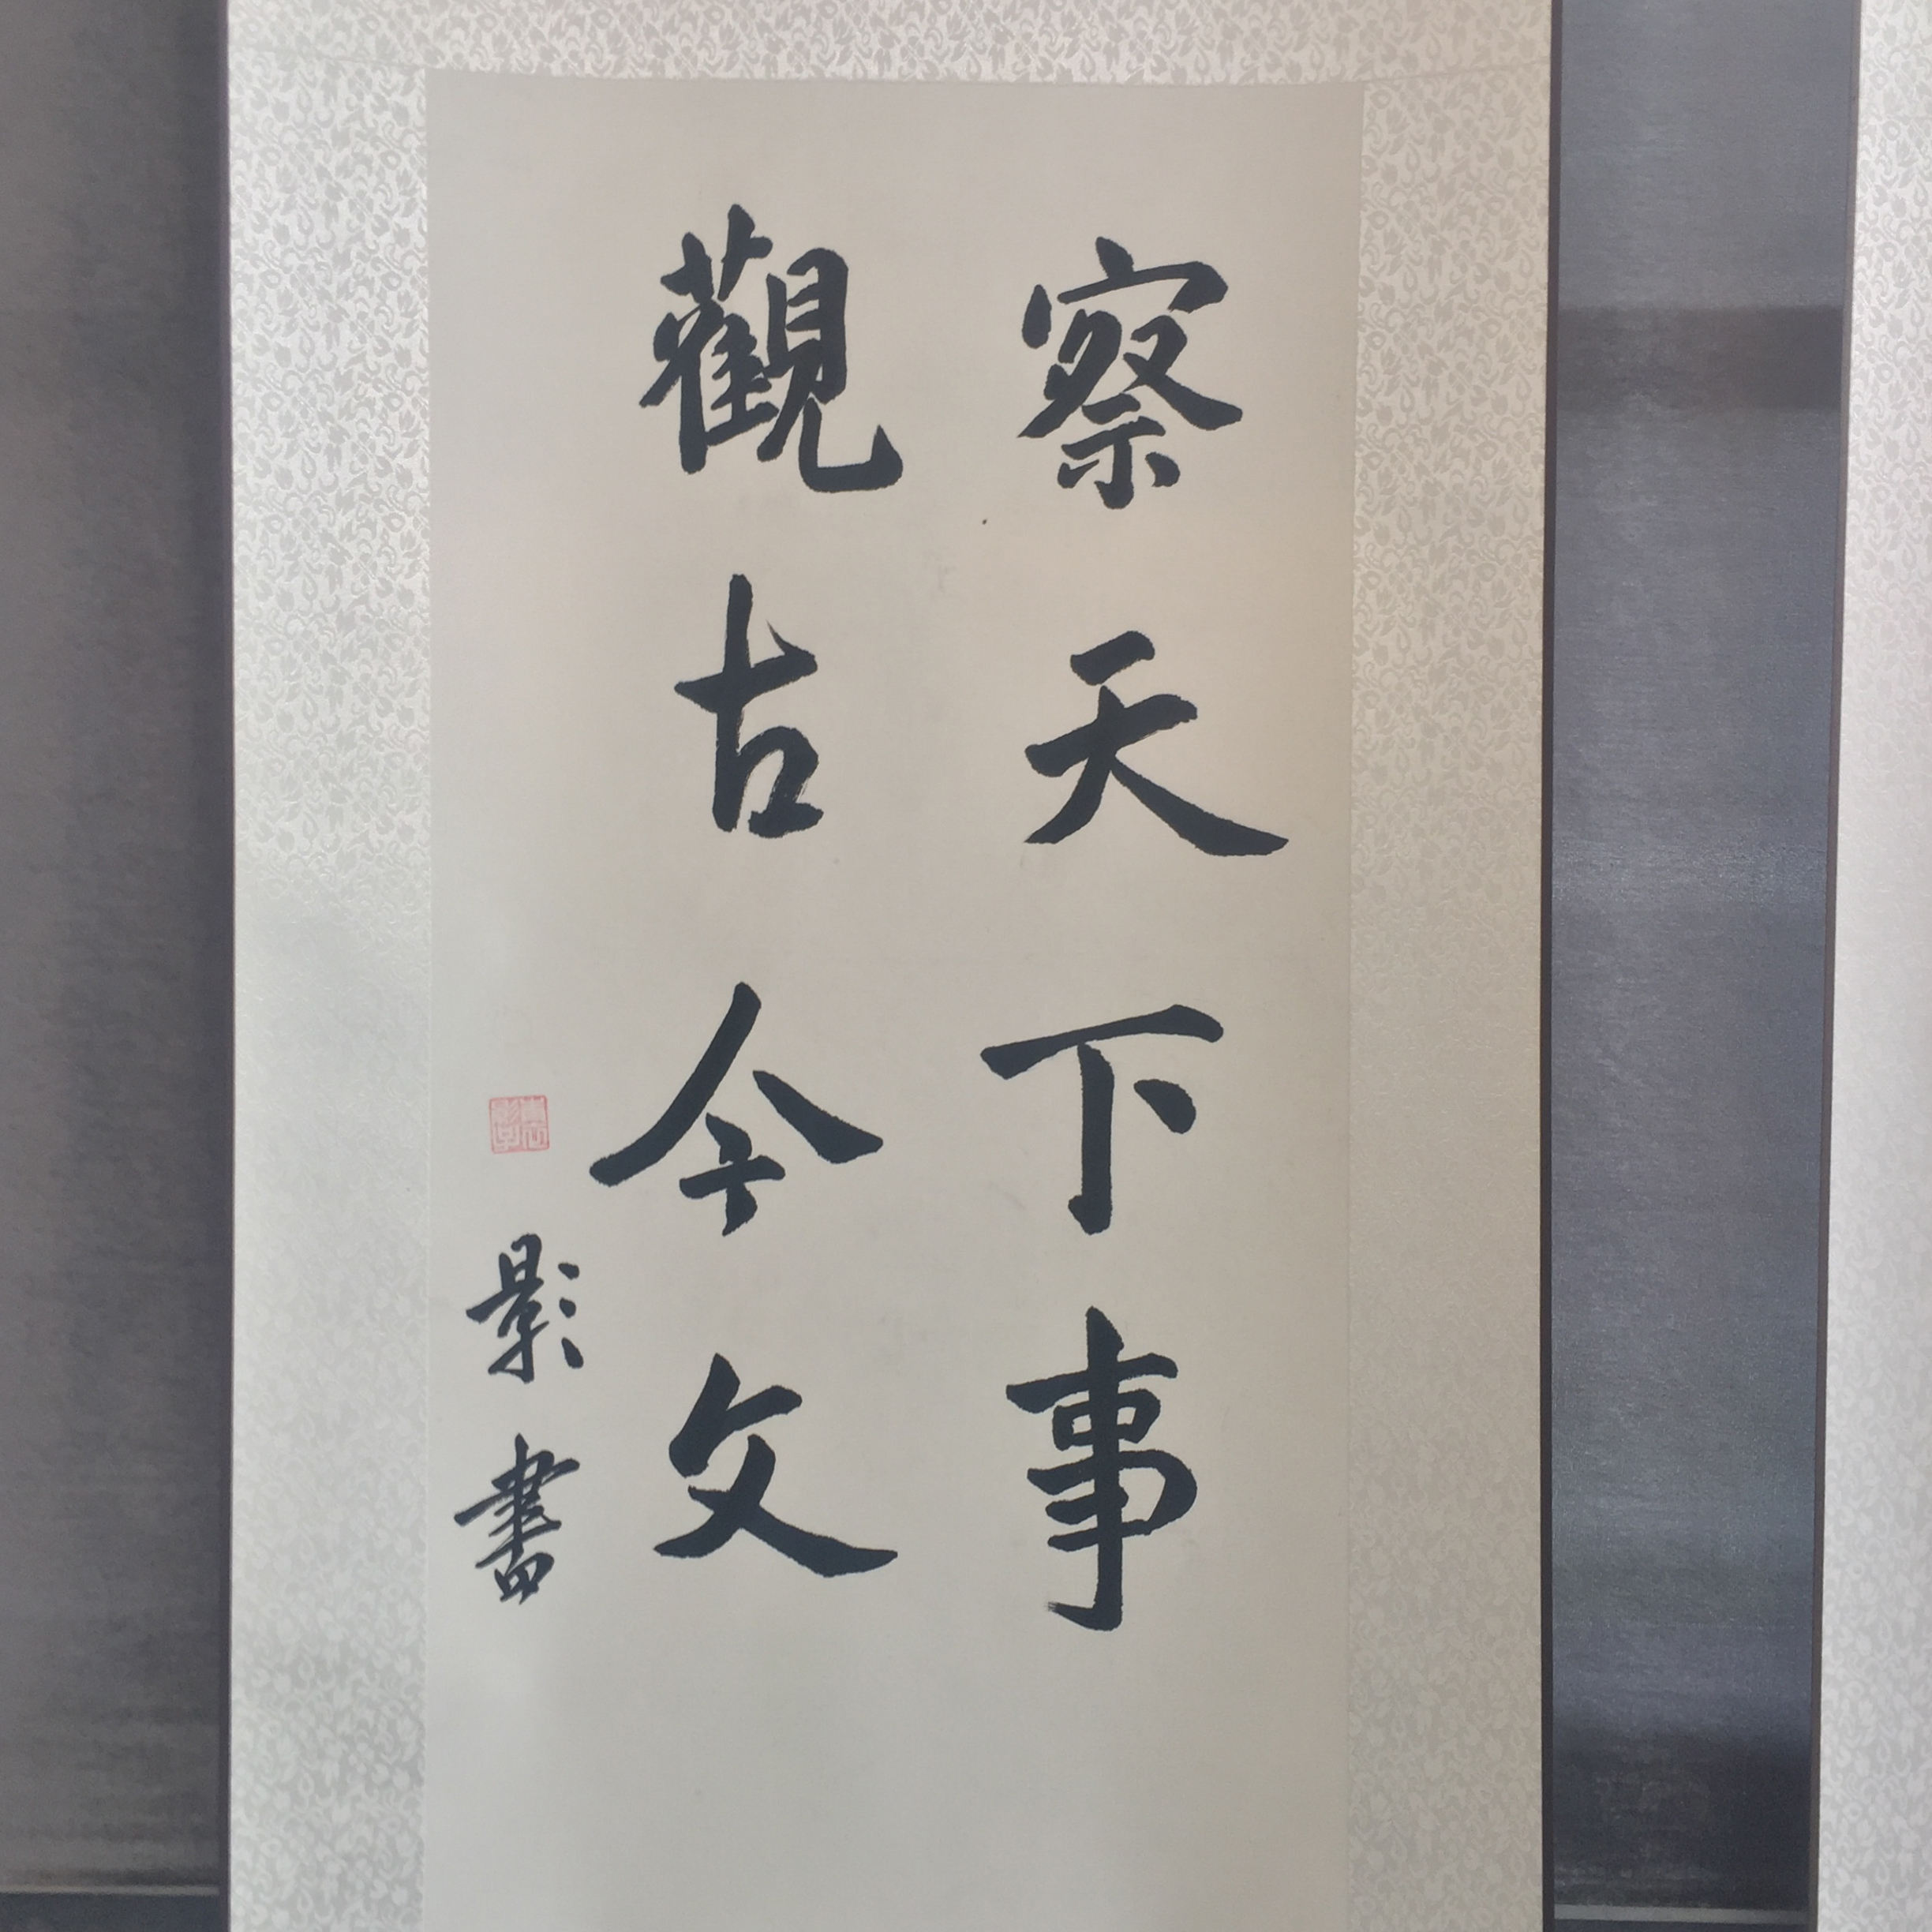 察天下事
觀古今文
影書